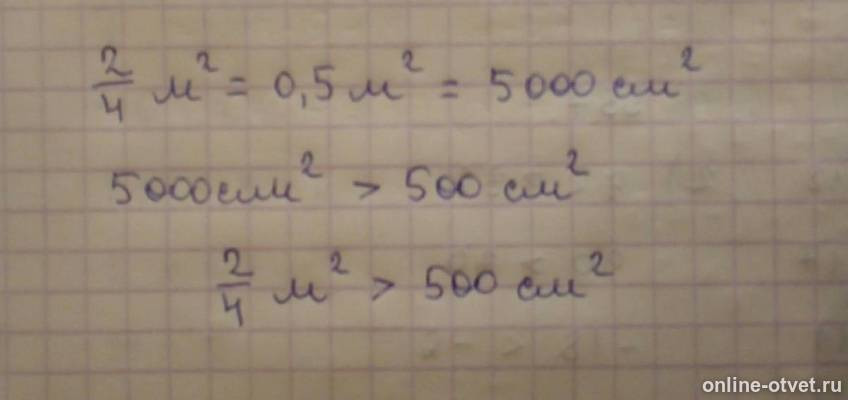 2/4 м² = 0,5 м² = 5000 см²
5000 см² > 500 см²
2/4 м² > 500 см²
online-otvet.ru